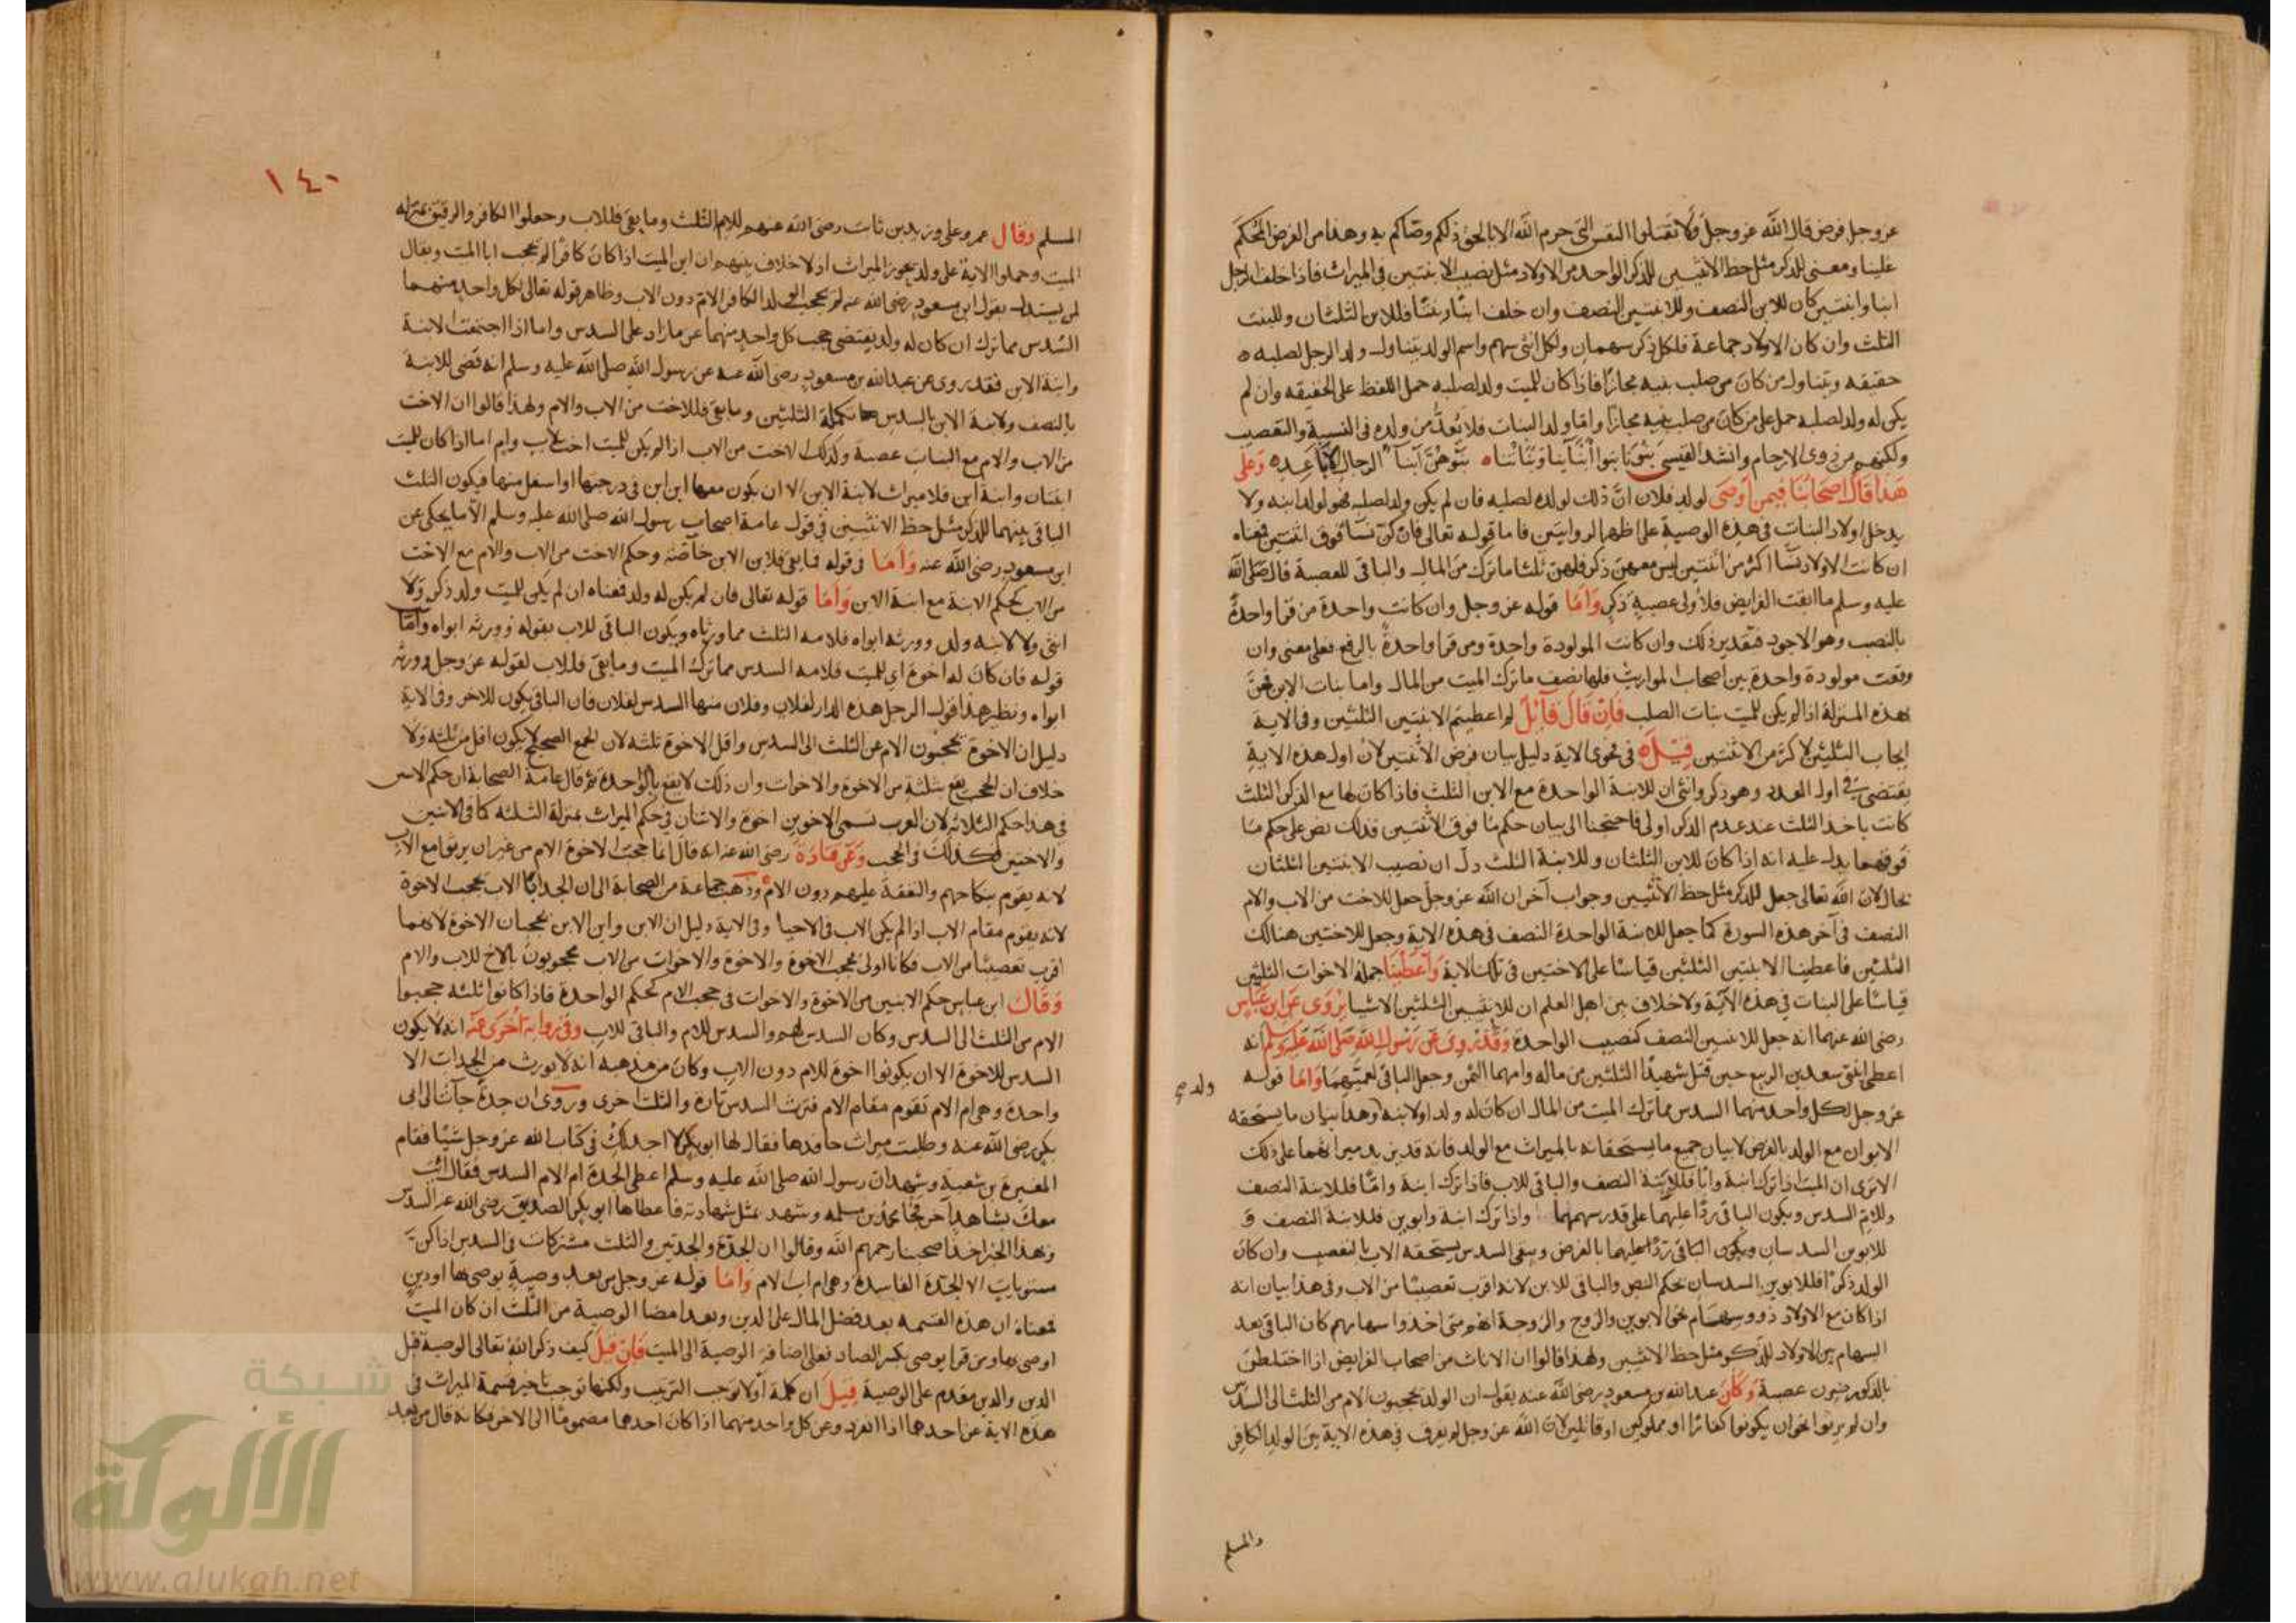 عز وجل فرض قال الله عز وجل ولا تقتلوا النفس التى حرم الله الا بالحق ذلكم وصاكم به وهذا من الفرض المحكم
علينا ومعنى للذكر مثل حظ الانثيين للذكر الواحد من الاولاد مثل نصيب الابنتين فى الميراث فاذا خلف الرجل
ابنا وابنتين كان للابن النصف وللابنتين النصف وان خلف ابنا وبنتا فللابن الثلثان وللبنت
الثلث وان كان الاولاد جماعة فلكل ذكر سهمان ولكل انثى سهم واسم الولد يتناول ولد الرجل لصلبه
حقيقه ويتناول من كان من صلب بنيه مجازا فاذا كان للميت ولد لصلبه حمل اللفظ على الحقيقه وان لم
يكن له ولد لصلبه حمل على من كان من صلب بنيه مجازا واما ولد البنات فلا يعد من ولده فى النسبة والتعصيب
ولكنهم من ذوى الارحام وانشد القيسى بنونا بنوا ابنائنا وبناتنا بنوهن ابنآ الرجال الاباعد وعلى
هذا قال اصحابنا فيمن اوصى لولد فلان ان ذلك لولده لصلبه فان لم يكن ولد لصلبه فهو لولد ابنه ولا
يدخل اولاد البنات فى هذه الوصية على اظهر الروايتين فاما قوله تعالى فان كن نسا فوق اثنتين فمعناه
ان كانت الاولاد نسا اكثر من اثنتين ليس معهن ذكر فلهن ثلثا ما ترك من المال والباقى للعصبة قال صلى الله
عليه وسلم ما ابقت الفرايض فلاولى عصبة ذكر واما قوله عز وجل وان كانت واحدة من قرا واحدة
بالنصب وهو الاجود فتقدير ذلك وان كانت المولودة واحدة ومن قرا واحدة بالرفع فعلى معنى وان
وقعت مولودة واحدة بين اصحاب المواريث فلها نصف ما ترك الميت من المال واما بنات الابن فهن
بهذه المنزلة اذا لم يكن للميت بنات الصلب فان قال قآئل لم اعطيتم الابنتين الثلثين وفى الاية
ايجاب الثلثين لاكثر من الابنتين قيل له فى فحوى الاية دليل بيان فرض الابنتين لان اول هذه الاية
يقتضى فى اول العدد وهو ذكر وانثى ان للابنة الواحدة مع الابن الثلث فاذا كان لها مع الذكر الثلث
كانت باخذ الثلث عند عدم الذكر اولى فاحتجنا الى بيان حكم ما فوق الابنتين فلذلك نص على حكم ما
فوقهما يدل عليه انه اذا كان للابن الثلثان وللابنة الثلث دل ان نصيب الابنتين الثلثان
بحال لان الله تعالى جعل للذكر مثل حظ الانثيين وجواب آخر ان الله عز وجل جعل للاخت من الاب والام
النصف فى آخر هذه السورة كما جعل للابنة الواحدة النصف فى هذه الاية وجعل للاختين هنالك
الثلثين فاعطينا الابنتين الثلثين قياسا على الاختين فى تلك الاية واعطينا جملة الاخوات الثلثين
قياسا على البنات فى هذه الآية ولا خلاف بين اهل العلم ان للابنتين الثلثين الا شيا يروى عن ابن عباس
رضى الله عنهما انه جعل للابنتين النصف كنصيب الواحدة وقد روى عن رسول الله صلى الله عليه وسلم انه
اعطى ابنتى سعد بن الربيع حين قتل شهيدا الثلثين من ماله وامهما الثمن وجعل الباقى لعمهما واما قوله
عز وجل لكل واحد منهما السدس مما ترك الميت من المال ان كان له ولد او لابنه وهذا بيان ما يستحقه
الابوان مع الولد بالفرض لا بيان جميع ما يستحقانه بالميراث مع الولد فانه قد يزيد ميراثهما على ذلك
الا ترى ان الميت اذا ترك ابنة وابا فللابنة النصف والباقى للاب فاذا ترك ابنة واما فللابنة النصف
وللام السدس ويكون الباقى ردا عليهما على قدر سهمهما واذا ترك ابنة وابوين فللابنة النصف و
للابوين السدسان ويكون الباقى ردا عليهما بالفرض ويبقى السدس يستحقه الاب بالتعصيب وان كان
الولد ذكرا فللابوين السدسان بحكم النص والباقى للابن لانه اقرب تعصيبا من الاب وفى هذا بيان انه
اذا كان مع الاولاد ذوو سهام نحو الابوين والزوج والزوجة انهم متى اخذوا سهامهم كان الباقى بعد
السهام بين الاولاد للذكر مثل حظ الانثيين ولهذا قالوا ان الاناث من اصحاب الفرايض اذا اختلطن
بالذكور صرن عصبة وكان عبد الله بن مسعود رضى الله عنه يقول ان الولد يحجبون الام من الثلث الى السدس
وان لم يرثوا نحو ان يكونوا كفارا او مملوكين او قاتلين لان الله عز وجل لم يفرق فى هذه الاية بين الولد الكافر
ولد
والمسلم
١٤٠
المسلم وقال عمر وعلى وزيد بن ثابت رضى الله عنهم للام الثلث وما بقى فللاب وجعلوا الكافر والرقيق بمنزله
الميت وحملوا الاية على ولد يحوز الميراث اذ لا خلاف بينهم ان ابن الميت اذا كان كافرا لم يحجب ابا الميت ويقال
لمن يستدل بقول ابن مسعود رضى الله عنه لم يحجب الولد الكافر الام دون الاب وظاهر قوله تعالى لكل واحد منهما
السدس مما ترك ان كان له ولد يقتضى حجب كل واحد منهما عن ما زاد على السدس واما اذا اجتمعت الابنة
وابنة الابن فقد روى عن عبد الله بن مسعود رضى الله عنه عن رسول الله صلى الله عليه وسلم انه قضى للابنة
بالنصف ولابنة الابن بالسدس تكملة الثلثين وما بقى فللاخت من الاب والام ولهذا قالوا ان الاخت
من الاب والام مع البنات عصبة وكذلك الاخت من الاب اذا لم يكن للميت اخت لاب وام اما اذا كان للميت
ابنتان وابنة ابن فلا ميراث لابنة الابن الا ان يكون معها ابن ابن فى درجتها او اسفل منها فيكون الثلث
الباقى بينهما للذكر مثل حظ الانثيين فى قول عامة اصحاب رسول الله صلى الله عليه وسلم الا ما يحكى عن
ابن مسعود رضى الله عنه واما فى قوله فما بقى فلابن الابن خآصة وحكم الاخت من الاب والام مع الاخت
من الاب كحكم الابنة مع ابنة الابن واما قوله تعالى فان لم يكن له ولد فمعناه ان لم يكن للميت ولد ذكر ولا
انثى ولا لابنه ولد وورثه ابواه فلامه الثلث مما ورثاه ويكون الباقى للاب بقوله وورثه ابواه واما
قوله فان كان له اخوة اى للميت فلامه السدس مما ترك الميت وما بقى فللاب لقوله عز وجل وورثه
ابواه ونظير هذا قول الرجل هذه الدار لفلان وفلان منها السدس لفلان فان الباقى يكون للاخر وفى الاية
دليل ان الاخوة يحجبون الام عن الثلث الى السدس واقل الاخوة ثلثة لان الجمع الصحيح لا يكون اقل من ثلثة ولا
خلاف ان الحجب يقع بثلثة من الاخوة والاخوات وان ذلك لا يقع بالواحدة ثم قال عامة الصحابة ان حكم الاثنين
فى هذا حكم الثلاثة لان العرب تسمى الاخوين اخوة والاثنان فى حكم الميراث بمنزلة الثلثة كما فى الابنتين
والاختين فكذلك فى الحجب وعن قتادة رضى الله عنه انه قال انما حجب الاخوة الام من غير ان يرثوا مع الاب
لانه يقوم بنكاحهم والنفقة عليهم دون الام وذهب جماعة من الصحابة الى ان الجد اب الاب يحجب الاخوة
لانه يقوم مقام الاب اذا لم يكن الاب فى الاحيا وفى الاية دليل ان الابن وابن الابن يحجبان الاخوة لانهما
اقرب تعصيبا من الاب فكانا اولى بحجب الاخوة والاخوة والاخوات من الاب محجوبون بالاخ للاب والام
وقال ابن عباس حكم الاثنين من الاخوة والاخوات فى حجب الام كحكم الواحدة فاذا كانوا ثلثة حجبوا
الام من الثلث الى السدس وكان السدس لهم والسدس للام والباقى للاب وفى رواية اخرى عنه انه لا يكون
السدس للاخوة الا ان يكونوا اخوة للام دون الاب وكان من مذهبه انه لا يورث من الجدات الا
واحدة وهى ام الام تقوم مقام الام فترث السدس تارة والثلث اخرى وروى ان جدة جآت الى ابى
بكر رضى الله عنه وطلبت ميراث حافدها فقال لها ابو بكر لا اجد لك فى كتاب الله عز وجل شيا فقام
المغيرة بن شعبة وشهد ان رسول الله صلى الله عليه وسلم اعطى الجدة ام الام السدس فقال ائت
معك بشاهد آخر فجا محمد بن مسلمه وشهد بمثل شهادته فاعطاها ابو بكر الصديق رضى الله عنه السدس
وبهذا الخبر اخذ اصحابنا رحمهم الله وقالوا ان الجدة والجدتين والثلث مشتركات فى السدس اذا كن
مستويات الا الجدة الفاسدة وهى ام اب الام واما قوله عز وجل من بعد وصية يوصى بها او دين
فمعناه ان هذه القسمه بعد فضل المال على الدين وبعد امضا الوصية من الثلث ان كان الميت
اوصى بها ومن قرا يوصى بكسر الصاد فعلى اضافة الوصية الى الميت فان قيل كيف ذكر الله تعالى الوصية قبل
الدين والدين مقدم على الوصية قيل ان كلمة او لا توجب الترتيب ولكنها توجب تاخير قسمة الميراث فى
هذه الاية عن احدهما اذا انفرد وعن كل واحد منهما اذا كان احدهما مضموما الى الاخر فكانه قال من بعد
شبكة
الألوكة
www.alukah.net